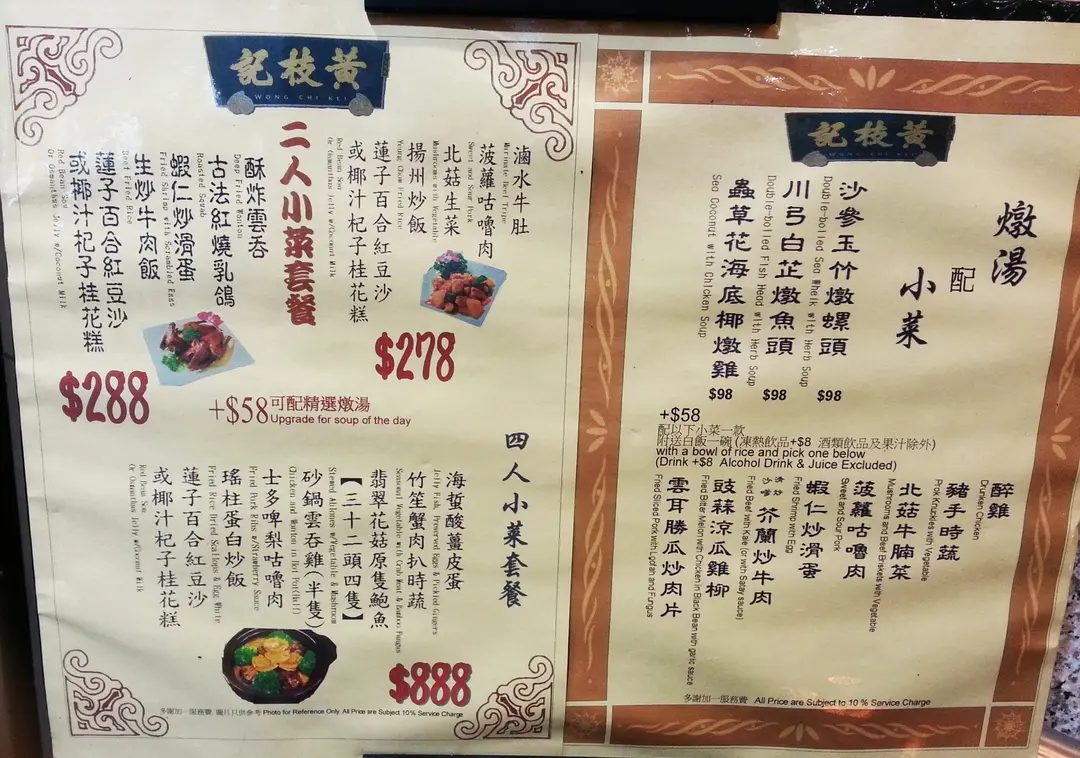 黃枝記
WONG CHI KEI
二人小菜套餐
滷水牛肚
Marinate Beef Tripe
菠蘿咕嚕肉
Sweet and Sour Pork
北菇生菜
Mushrooms with Vegetable
揚州炒飯
Young Chow Fried Rice
蓮子百合紅豆沙
或椰汁杞子桂花糕
Red Bean Sou
Or Osmanthus Jelly w/Coconut Milk
$278
酥炸雲吞
Deep Fried Wonton
古法紅燒乳鴿
Roasted Squab
蝦仁炒滑蛋
Fried Shrimp with Scrambled Eggs
生炒牛肉飯
Beef Fried Rice
蓮子百合紅豆沙
或椰汁杞子桂花糕
Red Bean Sou
Or Osmanthus Jelly w/Coconut Milk
$288
+$58可配精選燉湯
Upgrade for soup of the day
四人小菜套餐
海蜇酸薑皮蛋
Jelly Fish, Preserved Eggs & Pickled Gingers
竹笙蟹肉扒時蔬
Seasonal Vegetable with Crab Meat & Bamboo Fungus
翡翠花菇原隻鮑魚
【三十二頭四隻】
Stewed Ablones w/Vegetable & Mushroom
砂鍋雲吞雞(半隻)
Chicken and Wonton in Hot Pot(Half)
士多啤梨咕嚕肉
Fried Pork Ribs w/Strawberry Sauce
瑤柱蛋白炒飯
Fried Rice Dried Scallops & Egg White
蓮子百合紅豆沙
或椰汁杞子桂花糕
Red Bean Sou
Or Osmanthus Jelly w/Coconut Milk
$888
多謝加一服務費 圖片只供參考 Photo for Reference Only. All Price are Subject 10% Service Charge
黃枝記
WONG CHI KEI
燉湯
配
小菜
沙參玉竹燉螺頭
Double-boiled Sea Whelk with Herb Soup
$98
川弓白芷燉魚頭
Double-boiled Fish Head with Herb Soup
$98
蟲草花海底椰燉雞
Sea Coconut with Chicken Soup
$98
+$58
配以下小菜一款
附送白飯一碗(凍熱飲品+$8 酒類飲品及果汁除外)
with a bowl of rice and pick one below
(Drink +$8 Alcohol Drink & Juice Excluded)
醉雞
Drunken Chicken
豬手時蔬
Prok Knuckles with Vegetable
北菇牛腩菜
Mushrooms and Beef Briskets with Vegetable
菠蘿咕嚕肉
Sweet and Sour Pork
蝦仁炒滑蛋
Fried Shrimp with Egg
芥蘭炒牛肉
Fried Beef with Kale (or with Satay sauce)
豉蒜涼瓜雞柳
Fried Bitter Melon with Chicken in Black Bean with garlic sauce
雲耳勝瓜炒肉片
Fried Sliced Pork with Loofah and Fungus
多謝加一服務費 All Price are Subject to 10 % Service Charge